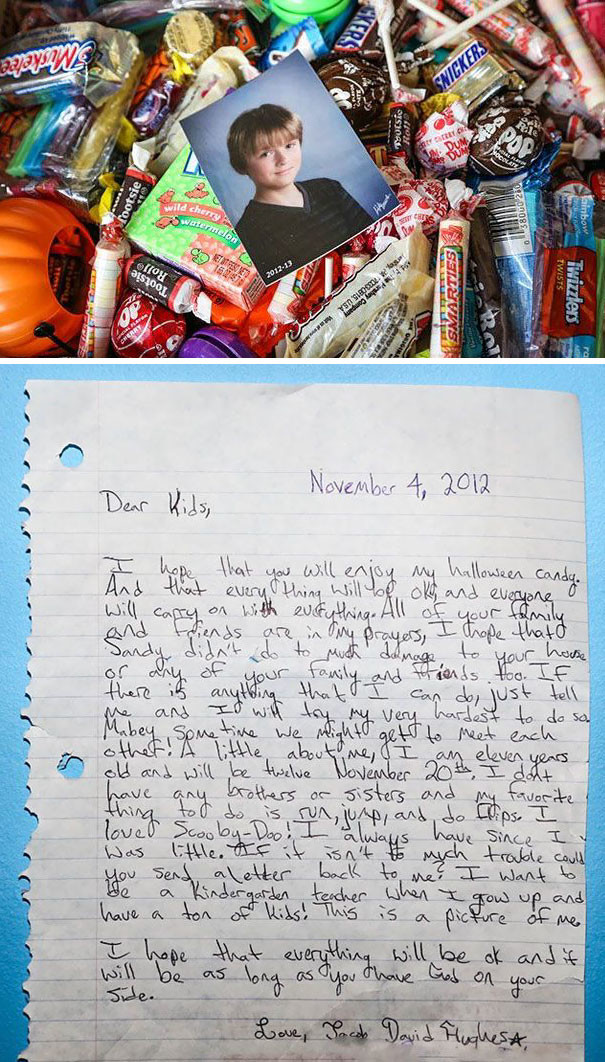 3 Musketeers
SNICKERS
SNICKERS
Tootsie
POP
CHERRY
DUM DUM
wild cherry
watermelon
2012-13
Tootsie Roll
Tootsie Roll
SMARTIES
Twizzlers
TWISTS
Rainbow
November 4, 2012
Dear Kids,
I hope that you will enjoy my halloween candy.
And that every thing will be ok and everyone
will carry on with everything. All of your family
and friends are in my prayers, I hope that
Sandy didn't do to much damage to your house
or any of your family and friends too. If
there is anything that I can do, just tell
me and I will try my very hardest to do so
Mabey sometime we might get to meet each
other! A little about me, I am eleven years
old and will be twelve November 20th. I dont
have any brothers or sisters and my favorite
thing to do is run, jump, and do flips. I
love Scooby-Doo! I always have since I
was little. If it isn't to much trouble could
you send a letter back to me? I want to
be a kindergarden teacher when I grow up and
have a ton of kids! This is a picture of me.
I hope that everything will be ok and it
will be as long as you have God on your
side.
Love, Jacob David Hughes